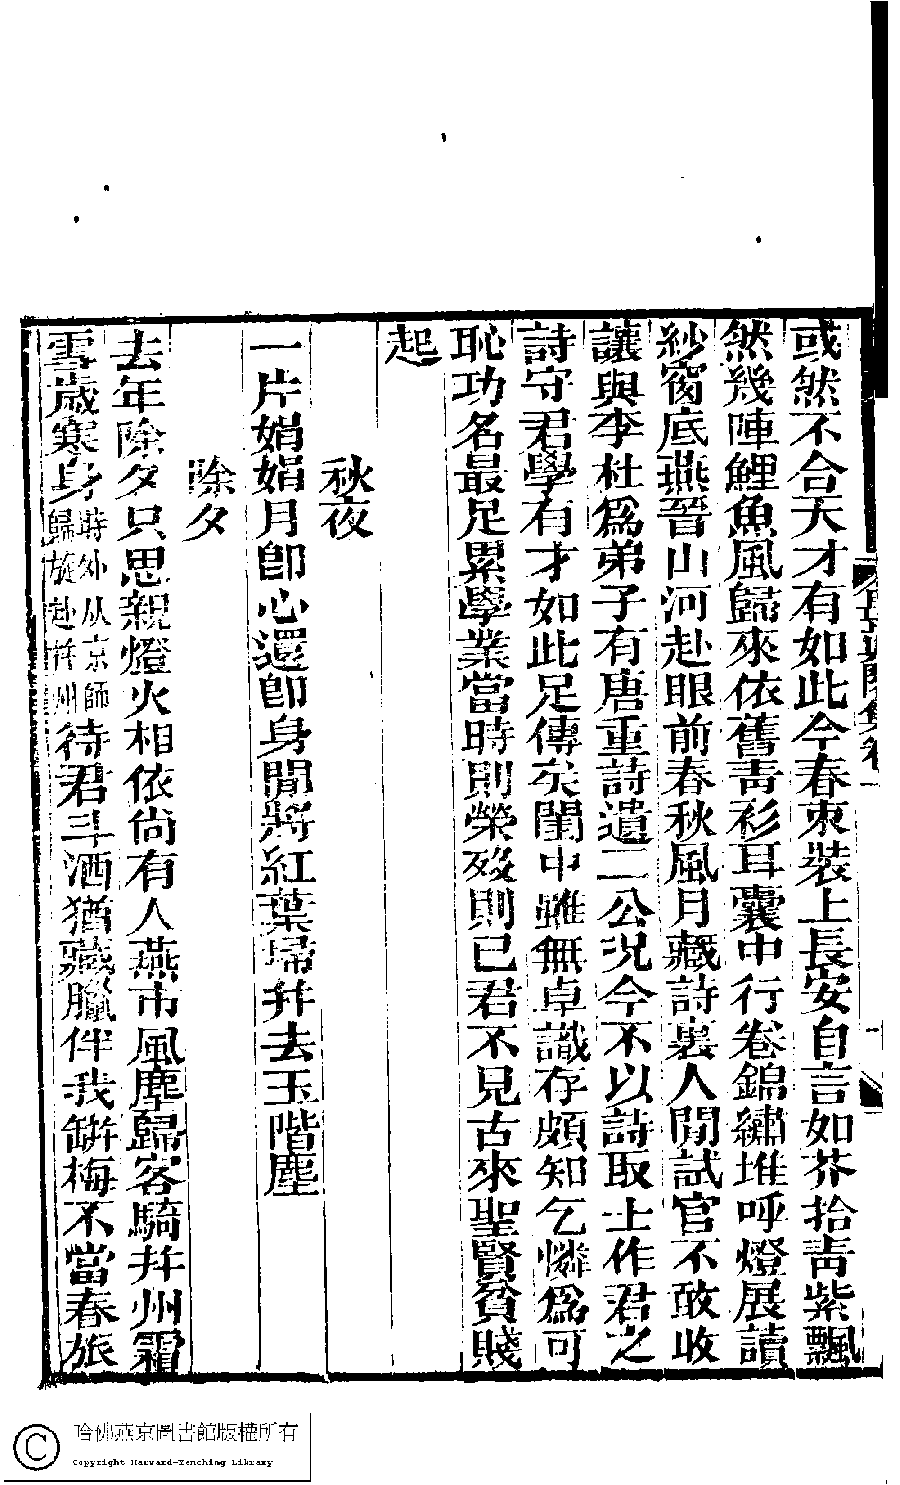 或然不合天才有如此今春束裝上長安自言如芥拾靑紫飄
然幾陣鯉魚風歸來依舊靑衫耳囊中行卷錦繡堆呼燈展讀
紗窗底燕晉山河赴眼前春秋風月藏詩裏人間試官不敢收
讓與李杜爲弟子有唐重詩遺二公况今不以詩取士作君之
詩守君學有才如此足傳矣閨中雖無卓識存頗知乞憐爲可
恥功名最足累學業當時則榮歿則已君不見古來聖賢貧賤
起
秋夜
一片娟娟月卽心還卽身閒將紅葉埽幷去玉階塵
除夕
去年除夕只思親燈火相依尙有人燕市風塵歸客騎幷州霜
雪歲寒身時外从京師歸旋赴幷州待君斗酒猶藏臘伴我缾梅不當春旅
卷一
哈佛燕京圖書館版權所有
Copyright Harvard-Yenching Library